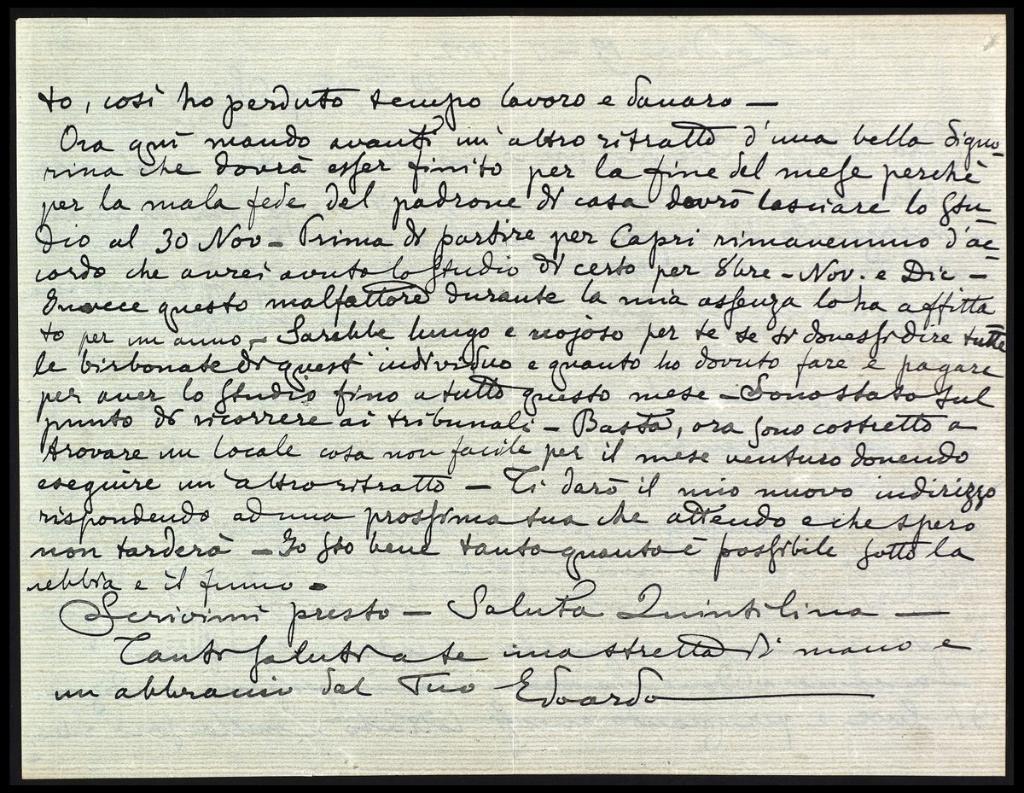 to, così ho perduto tempo lavoro e danaro —
Ora qui mando avanti un'altro ritratto d'una bella signo-
rina che dovrà esser finito per la fine del mese perchè
per la mala fede del padrone di casa dovrò lasciare lo stu-
dio al 30 Nov — Prima di partire per Capri rimanemmo d'ac-
cordo che avrei avuto lo studio di certo per 8bre — Nov. e Dic —
Invece questo malfattore durante la mia assenza lo ha affitta
to per un anno. — Sarebbe lungo e nojoso per te se ti dovessi dire tutte
le birbonate di questi individuo e quanto ho dovuto fare e pagare
per aver lo studio fino a tutto questo mese — Sono stato sul
punto di ricorrere ai tribunali — Basta, ora sono costretto a
trovare un locale cosa non facile per il mese venturo dovendo
eseguire un'altro ritratto — Ti darò il mio nuovo indirizzo
rispondendo ad una prossima tua che attendo e che spero
non tarderà — Io sto bene tanto quanto è possibile sotto la
nebbia e il fumo —
Scrivimi presto — Saluta Quintilina —
Tanti saluti a te una stretta di mano e
un abbraccio dal Tuo Edoardo